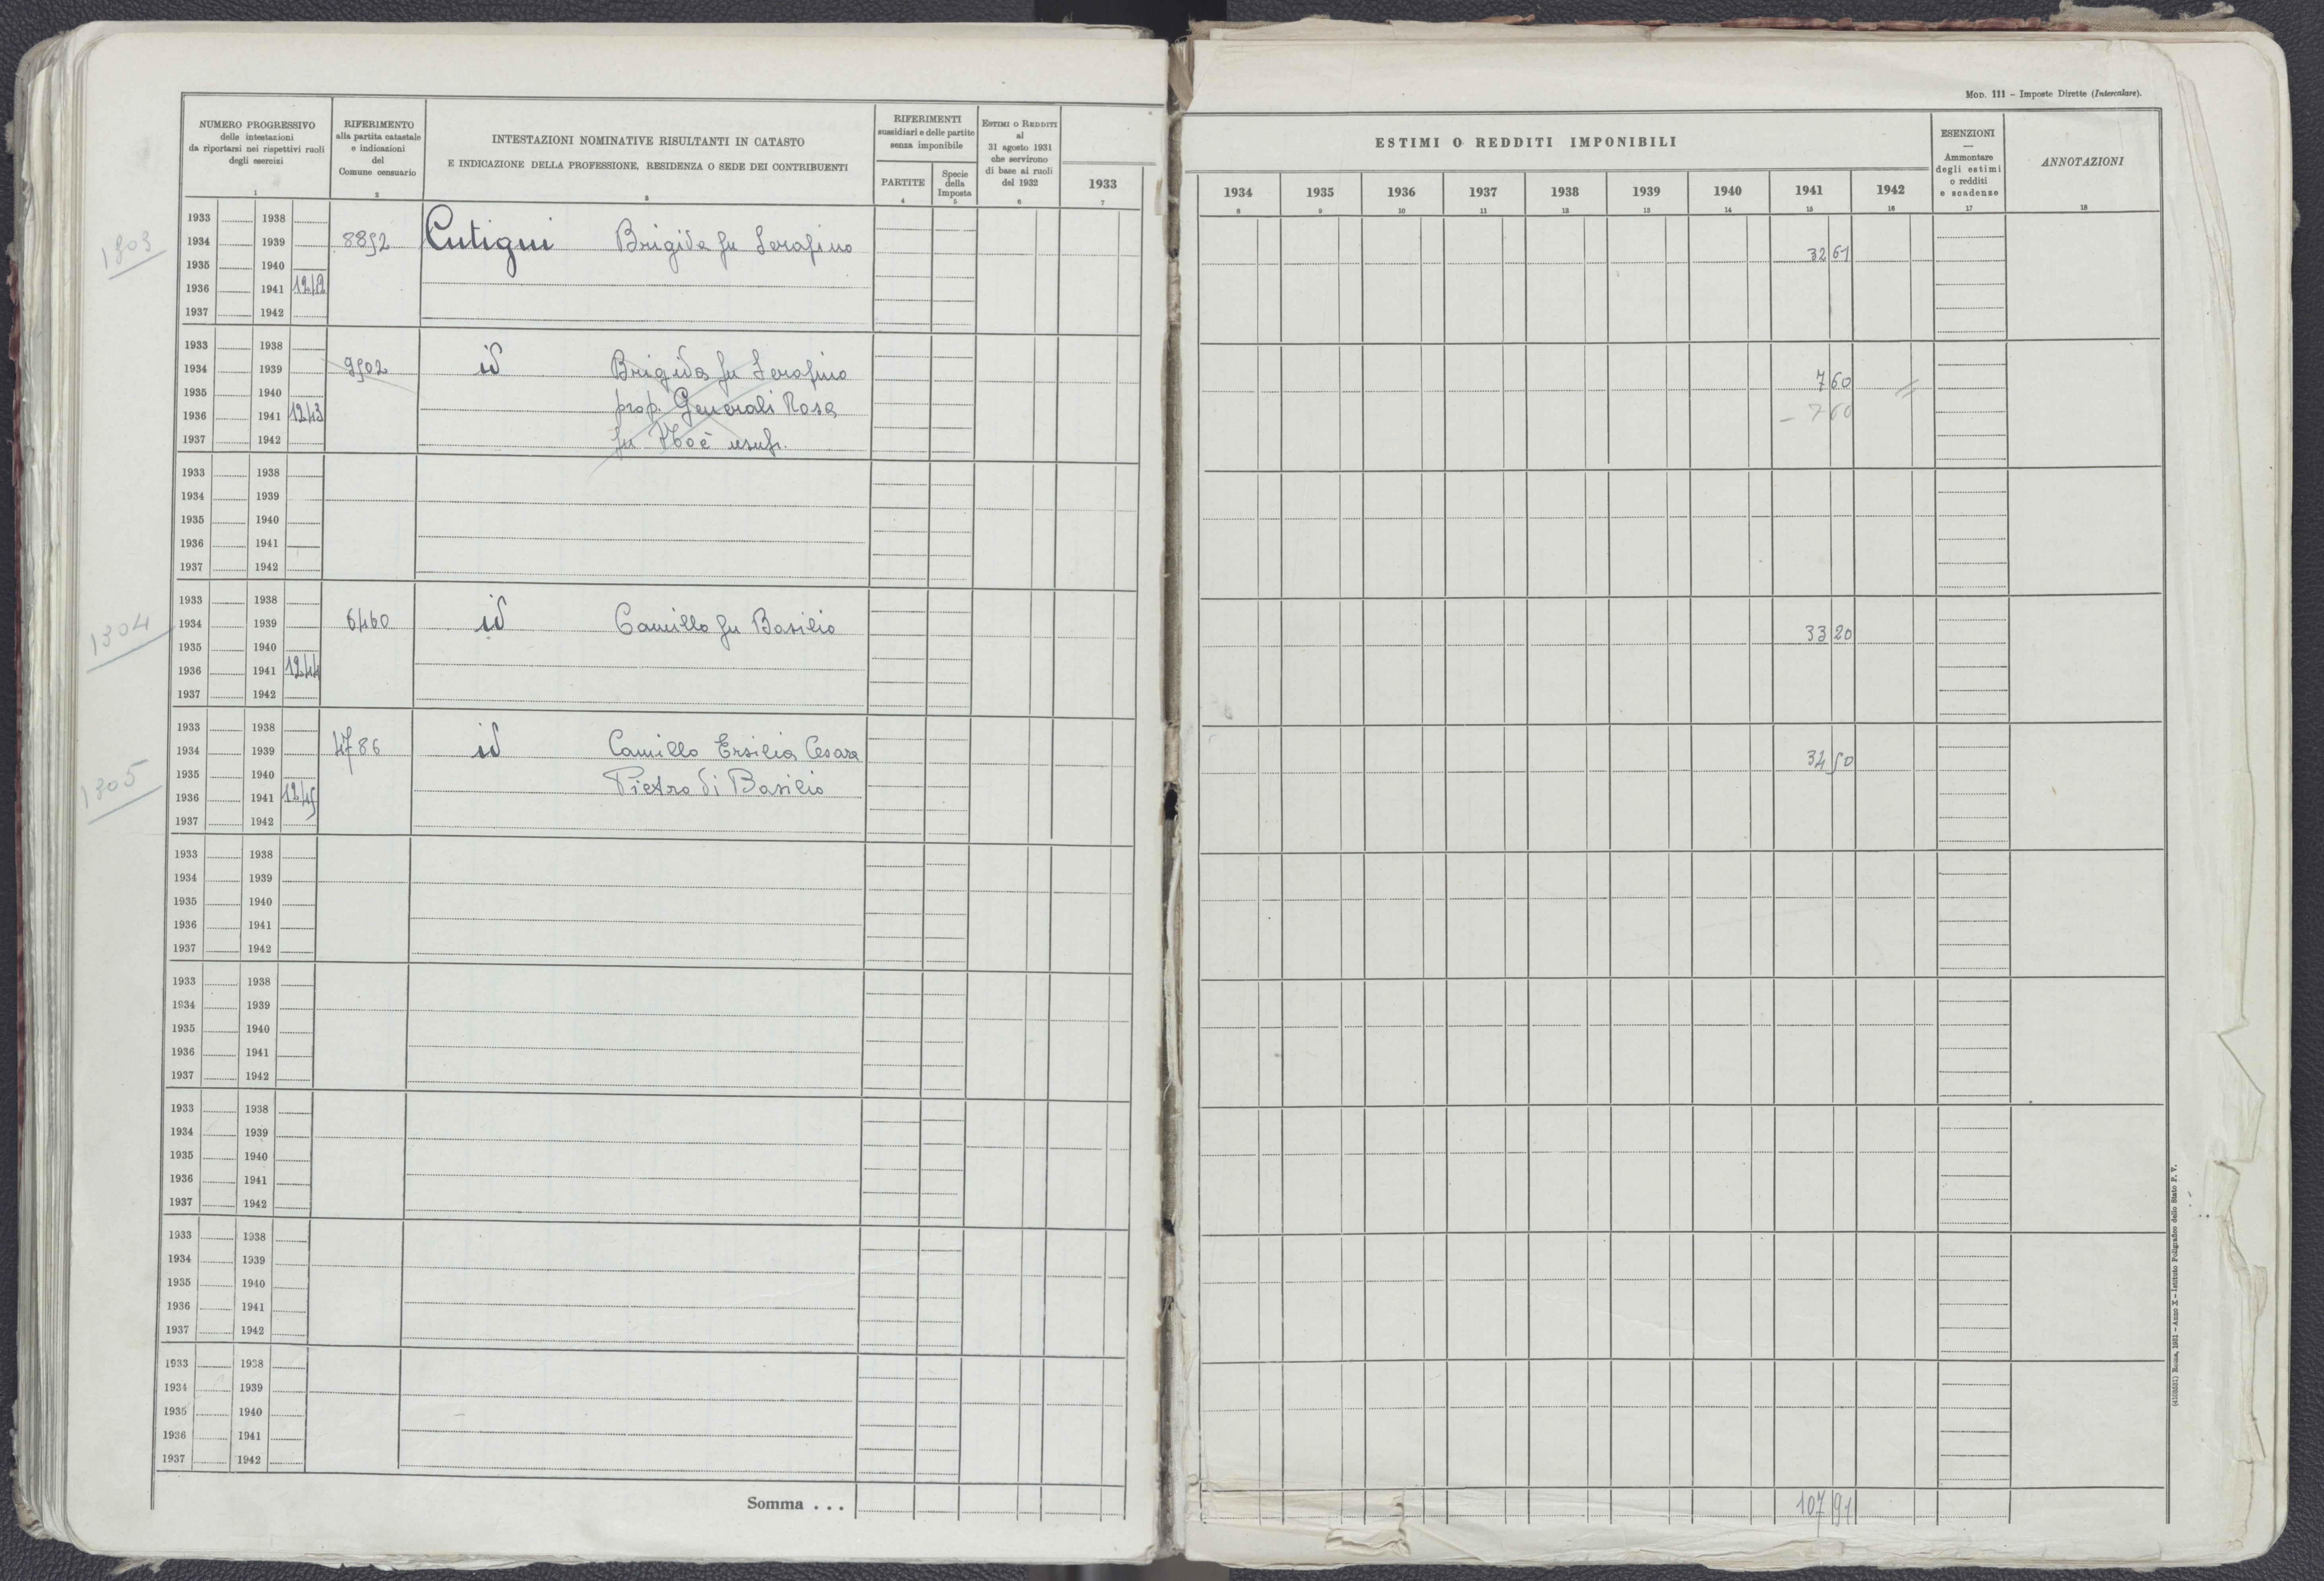 NUMERO PROGRESSIVO
delle intestazioni
da riportarsi nei rispettivi ruoli
degli esercizi
1
RIFERIMENTO
alla partita catastale
e indicazioni
del
Comune censuario
2
INTESTAZIONI NOMINATIVE RISULTANTI IN CATASTO
E INDICAZIONE DELLA PROFESSIONE, RESIDENZA O SEDE DEI CONTRIBUENTI
3
RIFERIMENTI
sussidiari e delle partite
senza imponibile
PARTITE
4
Specie
della
Imposta
5
ESTIMI O REDDITI
al
31 agosto 1931
che servirono
di base ai ruoli
del 1932
6
1933
7
1303
1933 1938
1934 1939 8852 Cutigni Brigida fu Serafino
1935 1940
1936 1941 1242
1937 1942
1933 1938
1934 1939 9502 id Brigida fu Serafino
1935 1940
1936 1941 1243 prop. Generali Rosa
1937 1942 fu Noè usuf.
1933 1938
1934 1939
1935 1940
1936 1941
1937 1942
1304
1933 1938
1934 1939 6460 id Camillo fu Basilio
1935 1940
1936 1941 1244
1937 1942
1305
1933 1938
1934 1939 4786 id Camillo Ersilia Cesare
1935 1940
1936 1941 1245 Pietro di Basilio
1937 1942
1933 1938
1934 1939
1935 1940
1936 1941
1937 1942
1933 1938
1934 1939
1935 1940
1936 1941
1937 1942
1933 1938
1934 1939
1935 1940
1936 1941
1937 1942
1933 1938
1934 1939
1935 1940
1936 1941
1937 1942
1933 1938
1934 1939
1935 1940
1936 1941
1937 1942
Somma . . .
MOD. 111 – Imposte Dirette (Intercalare).
ESTIMI O REDDITI IMPONIBILI
1934 1935 1936 1937 1938 1939 1940 1941 1942
8 9 10 11 12 13 14 15 16
ESENZIONI
—
Ammontare
degli estimi
o redditi
e scadenze
17
ANNOTAZIONI
18
32 61
7 60 =
– 7 60
33 20
34 50
107 91
(4103531) Roma, 1931 – Anno X – Istituto Poligrafico dello Stato P. V.